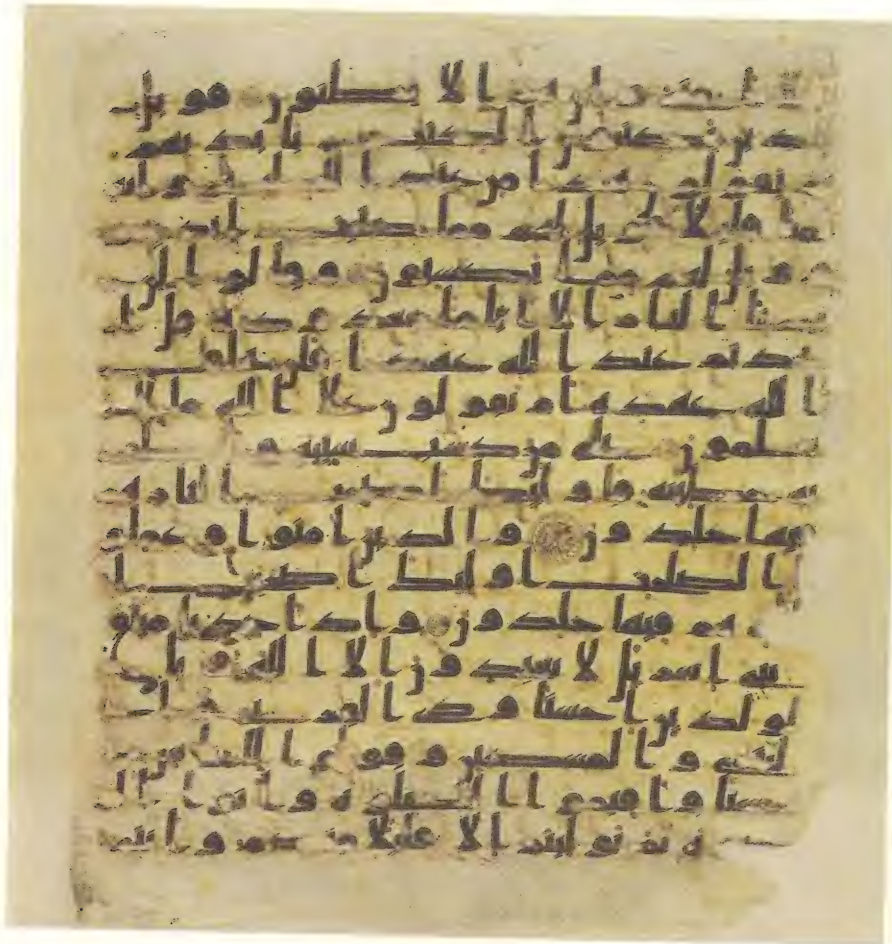 اماني وان هم الا يظنون فويل
للذين يكتبون الكتب بايديهم
ثم يقولون هذا من عند الله ليشتروا به
ثمنا قليلا فويل لهم مما كتبت ايديه
م وويل لهم مما يكسبون وقالوا لن
تمسنا النار الا اياما معدوده قل ا
تخذتم عند الله عهدا فلن يخلف
الله عهده ام تقولون علا الله ما لا
تعلمون بلى من كسب سييه واحطت
به خطيته فاوليك اصحب النار هم
فيها خلدون والذين امنوا وعملوا
الصلحت اوليك اصحب ا
لجنه هم فيها خلدون واذ اخذنا ميثق
بني اسريل لا تعبدون الا الله وبا
لولدين احسنا وذي القربى وا
ليتمى والمسكين وقولوا للناس
حسنا واقيموا الصلوه واتوا الز
كوه ثم توليتم الا قليلا منكم وانتم